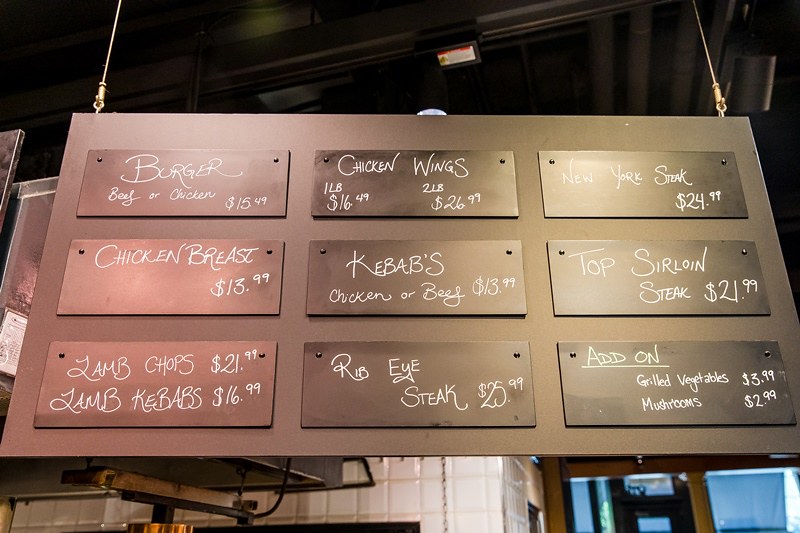 BURGER
Beef or Chicken
$15.49
CHICKEN WINGS
1LB 2LB
$16.49 $26.99
NEW YORK STEAK
$24.99
CHICKEN BREAST
$13.99
KEBAB'S
Chicken or Beef $13.99
TOP SIRLOIN
STEAK $21.99
LAMB CHOPS $21.99
LAMB KEBABS $16.99
RIB EYE
STEAK $25.99
ADD ON
Grilled Vegetables $3.99
Mushrooms $2.99